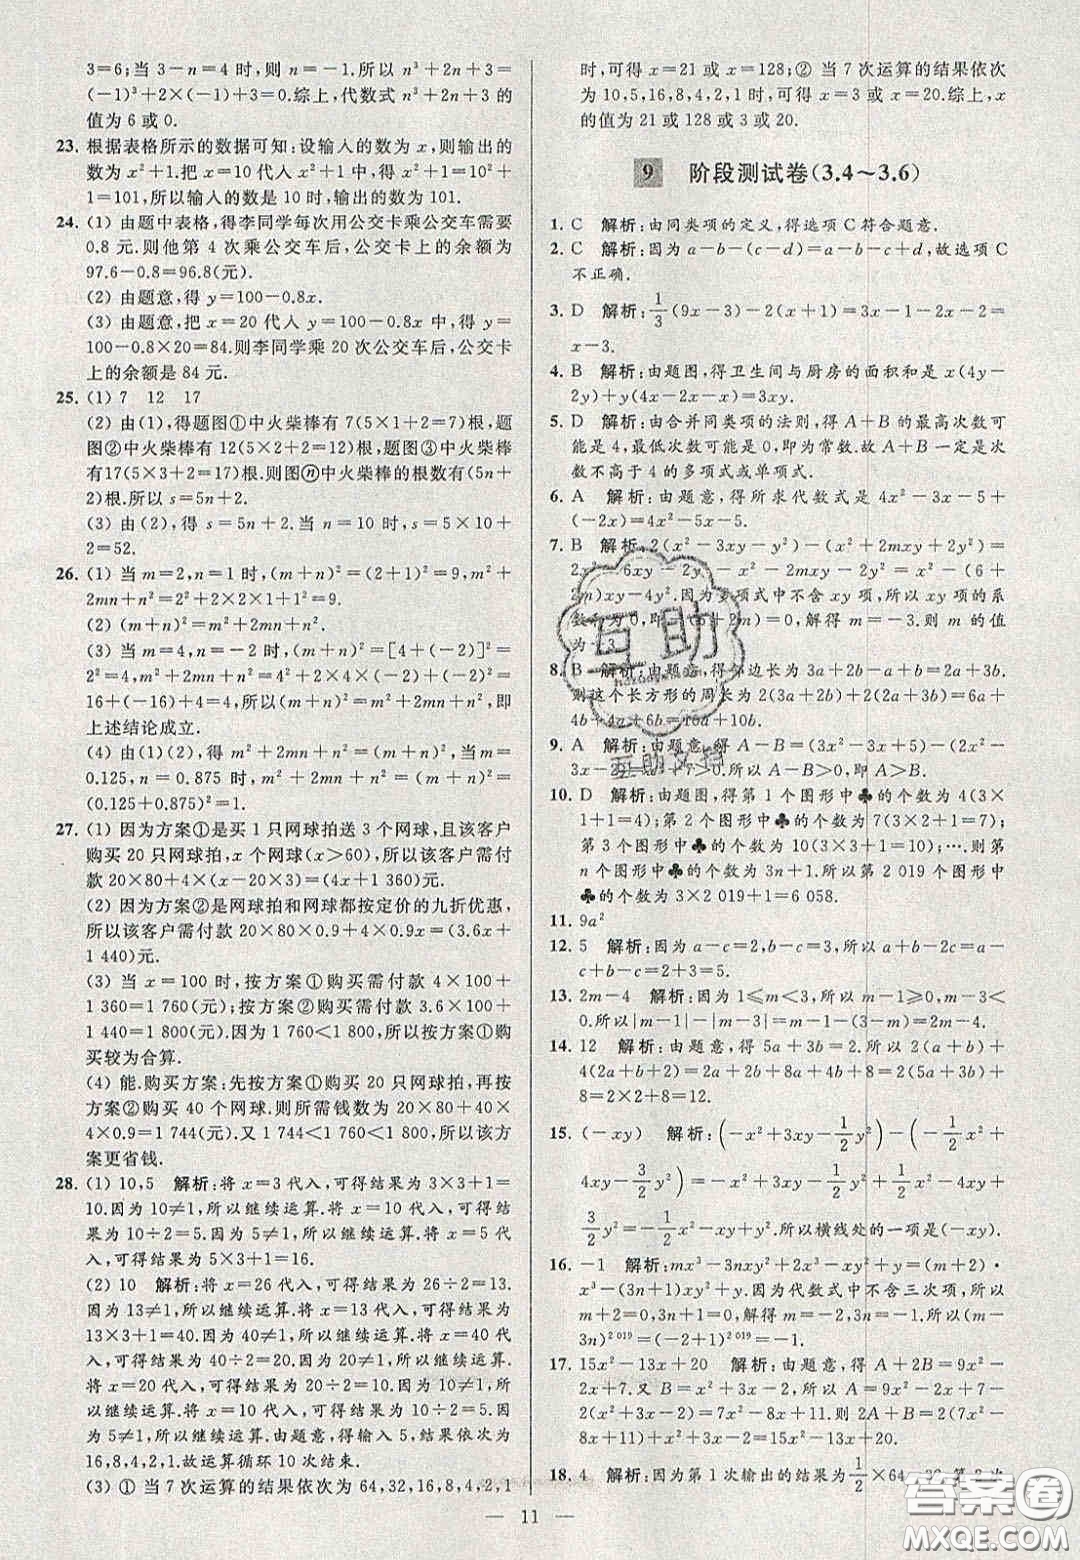 3=6;当 3-n=4 时,则 n=-1.所以 n³+2n+3=
(-1)³+2×(-1)+3=0.综上,代数式 n³+2n+3 的
值为 6 或 0.
23. 根据表格所示的数据可知:设输入的数为 x,则输出的
数为 x²+1.把 x=10 代入,得 x²+1=10²+1=
101,所以输入的数是 10 时,输出的数为 101.
24. (1) 由题中表格,得李同学每次用公交卡乘公交车需要
0.8 元.则他第 4 次乘公交车后,公交卡上的余额为
97.6-0.8=96.8(元).
(2) 由题意,得 y=100-0.8x.
(3) 由题意,把 x=20 代入 y=100-0.8x 中,得 y=
100-0.8×20=84.则李同学乘 20 次公交车后,公交卡
上的余额是 84 元.
25. (1) 7 12 17
(2) 由(1),得题图①中火柴棒有 7(5×1+2=7)根,题
图②中火柴棒有 12(5×2+2=12)根,题图③中火柴棒
有17(5×3+2=17)根.则图ⓝ中火柴棒的根数有(5n+
2)根.所以 s=5n+2.
(3) 由(2),得 s=5n+2.当 n=10 时,s=5×10+
2=52.
26. (1) 当 m=2,n=1 时,(m+n)²=(2+1)²=9,m²+
2mn+n²=2²+2×2×1+1²=9.
(2) (m+n)²=m²+2mn+n².
(3) 当 m=4,n=-2 时,(m+n)²=[4+(-2)]²=
2²=4,m²+2mn+n²=4²+2×4×(-2)+(-2)²=
16-16+4=4,所以(m+n)²=m²+2mn+n²,即
上述结论成立.
(4) 由(1)(2),得 m²+2mn+n²=(m+n)².当 m=
0.125,n=0.875 时,m²+2mn+n²=(m+n)²=
(0.125+0.875)²=1.
27. (1) 因为方案①是买 1 只网球拍送 3 个网球,且该客户
购买 20 只网球拍,x 个网球(x>60),所以该客户需付
款 20×80+4×(x-20×3)=(4x+1 360)元.
(2) 因为方案②是网球拍和网球都按定价的九折优惠,
所以该客户需付款 20×80×0.9+4×0.9x=(3.6x+
1 440)元.
(3) 当 x=100 时,按方案①购买需付款 4×100+
1 360=1 760(元);按方案②购买需付款 3.6×100+
1 440=1 800(元).因为 1 760<1 800,所以按方案①购
买较为合算.
(4) 能.购买方案:先按方案①购买 20 只网球拍,再按
方案②购买 40 个网球.则所需钱数为 20×80+40×
4×0.9=1 744(元).又 1 744<1 760<1 800,所以该方
案更省钱.
28. (1) 10,5 解析:将 x=3 代入,可得结果为 3×3+1=
10.因为 10≠1,所以继续运算.将 x=10 代入,可得结
果为 10÷2=5.因为 5≠1,所以继续运算.将 x=5 代
入,可得结果为 5×3+1=16.
(2) 10 解析:将 x=26 代入,可得结果为 26÷2=13.
因为 13≠1,所以继续运算.将 x=13 代入,可得结果为
13×3+1=40.因为 40≠1,所以继续运算.将 x=40 代
入,可得结果为 40÷2=20.因为 20≠1,所以继续运算.
将 x=20 代入,可得结果为 20÷2=10.因为 10≠1,所
以继续运算.将 x=10 代入,可得结果为 10÷2=5.因
为 5≠1,所以继续运算.由题意,得输入 5,结果依次为
16,8,4,2,1.故运算循环 10 次结束.
(3) ① 当 7 次运算的结果依次为 64,32,16,8,4,2,1
时,可得 x=21 或 x=128;② 当 7 次运算的结果依次
为 10,5,16,8,4,2,1 时,可得 x=3 或 x=20.综上,x
的值为 21 或 128 或 3 或 20.
9 阶段测试卷(3.4～3.6)
1. C 解析:由同类项的定义,得选项 C 符合题意.
2. C 解析:因为 a-b-(c-d)=a-b-c+d,故选项 C
不正确.
3. D 解析:1/3(9x-3)-2(x+1)=3x-1-2x-2=
x-3.
4. B 解析:由题图,得卫生间与厨房的面积和是 x(4y-
2y)+y(4x-2x-x)=3xy.
5. D 解析:由合并同类项的法则,得 A+B 的最高次数可
能是 4,最低次数可能是 0,即为常数.故 A+B 一定是次
数不高于 4 的多项式或单项式.
6. A 解析:由题意,得所求代数式是 4x²-3x-5+
(-2x)=4x²-5x-5.
7. B 解析:2(x²-3xy-y²)-(x²+2mxy+2y²)=
2x²-6xy-2y²-x²-2mxy-2y²=x²-(6+
2m)xy-4y².因为多项式中不含 xy 项,所以 xy 的系
数为 0,即-(6+2m)=0,解得 m=-3.则 m 的值
为-3.
8. B 解析:由题意,得邻边长为 3a+2b-a=2a+2b.
则这个长方形的周长为 2(3a+2b)+2(2a+2b)=6a+
4b+4a+4b=10a+8b.
9. A 解析:由题意,得 A-B=(3x²-3x+5)-(2x²-
3x-2)=x²+7>0.所以 A-B>0,即 A>B.
10. D 解析:由题图,得第 1 个图形中♣的个数为 4(3×
1+1=4);第 2 个图形中♣的个数为 7(3×2+1=7);
第 3 个图形中♣的个数为 10(3×3+1=10);….则第
n 个图形中♣的个数为 3n+1.所以第 2 019 个图形中
♣的个数为 3×2 019+1=6 058.
11. 9a²
12. 5 解析:因为 a-c=2,b-c=3,所以 a+b-2c=a-
c+b-c=2+3=5.
13. 2m-4 解析:因为 1≤m<3,所以 m-1≥0,m-3<
0.所以|m-1|-|m-3|=m-1-(3-m)=2m-4.
14. 12 解析:由题意,得 5a+3b=2.所以 2(a+b)+
4(2a+b+2)=2a+2b+8a+4b+8=10a+6b+
8=2×2+8=12.
15. (-xy) 解析:(-x²+3xy-1/2y²)-(-1/2x²+
4xy-3/2y²)=-x²+3xy-1/2y²+1/2x²-4xy+
3/2y²=-1/2x²-xy+y².所以横线处的一项是(-xy).
16. -1 解析:mx³-3nxy²+2x³-xy²+y=(m+2)·
x³-(3n+1)xy²+y.因为代数式中不含三次项,所以
m+2=0,3n+1=0,解得 m=-2,3n=-1.所以(m-
3n)²⁰¹⁹=(-2+1)²⁰¹⁹=-1.
17. 15x²-13x+20 解析:由题意,得 A+2B=9x²-
2x+7.又 B=x²+3x-2,所以 A=9x²-2x+7-
2(x²+3x-2)=7x²-8x+11.所以 2A+B=2(7x²-
8x+11)+x²+3x-2=15x²-13x+20.
18. 4 解析:因为第 1 次输出的结果为 1/2×64=32,第 2 次
— 11 —
互助
互助文档
答案圈
MXQE.COM